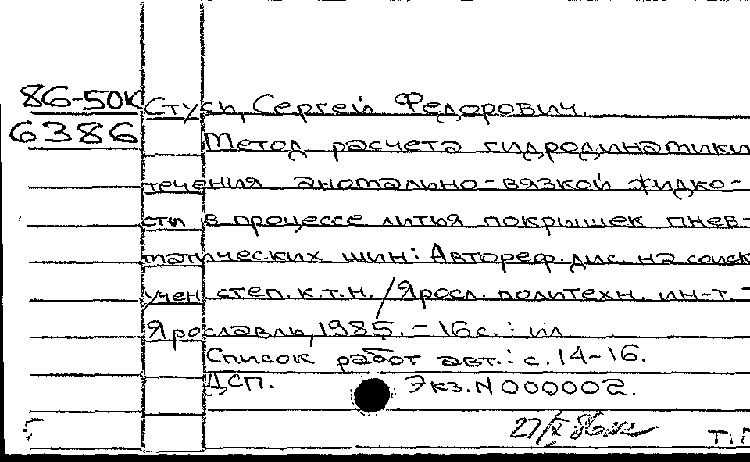 86-50к Стусь, Сергей Федорович.
6386 Метод расчета гидродинатики
течения аномально-вязкой жидко-
сти в процессе литья покрышек пнев-
матических шин: Автореф. дис. на соиск
учен. степ. к.т.н. / Яросл. политехн. ин-т. -
Ярославль, 1985. - 16с.: ил
Список работ авт.: с. 14-16.
ДСП. Экз. N 000002.